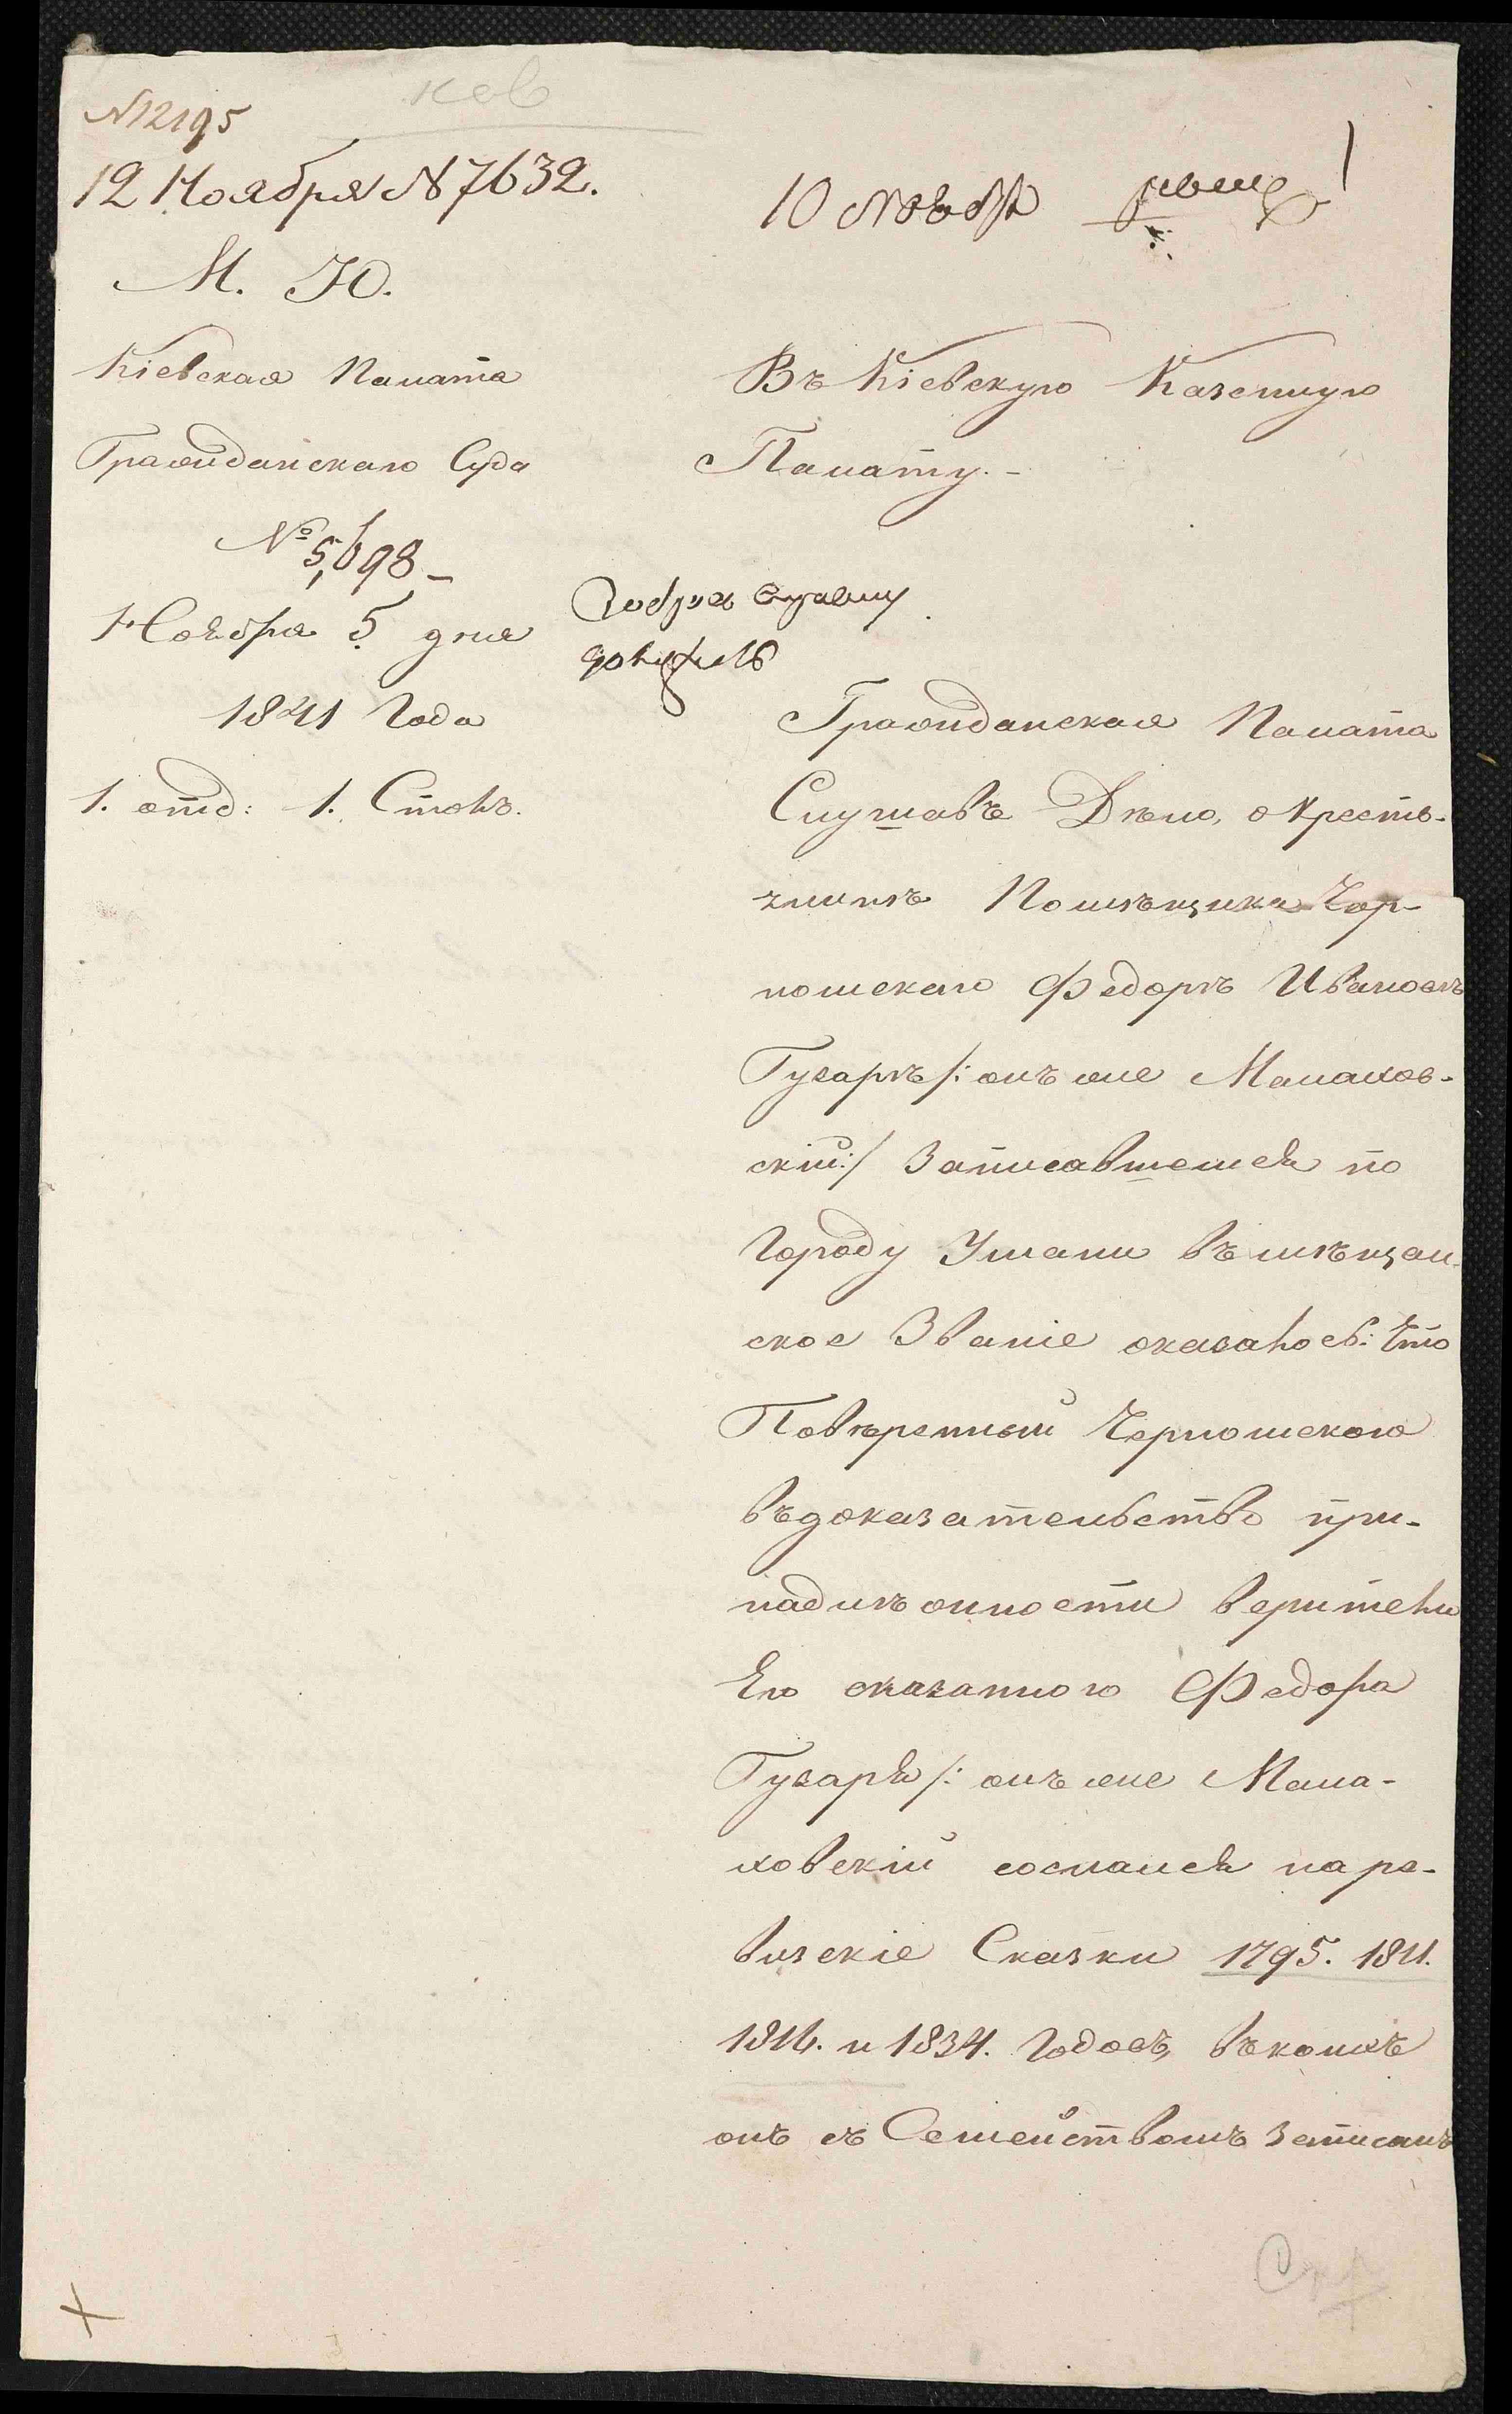 №12195
12 Ноября №7632.
10 Ноября
М. Ю.
Кіевская Палата
Гражданскаго Суда
№ 5,698
Ноября 5 дня
1841 Года
1. отд: 1. Столъ.
Въ Кіевскую Казенную
Палату.-
Гражданская Палата
Слушавъ Дѣло, о Крестъ-
янинѣ Помѣщика Чор-
номскаго Федорѣ Ивановѣ
Гусарѣ /: онъ же Малахов-
скій :/ Записавшемся по
Городу Умани въ мѣщан-
ское Званіе оказалось: Что
Повѣренный Черномскаго
въ доказательство при-
надлѣжности верителю
Его сказанного Федора
Гусаря /: онъ же Мала-
ховскій сослался на ре-
визскіе Сказки 1795. 1811.
1816. и 1834. Годовъ, въ коихъ
онъ съ Семействомъ Записанъ